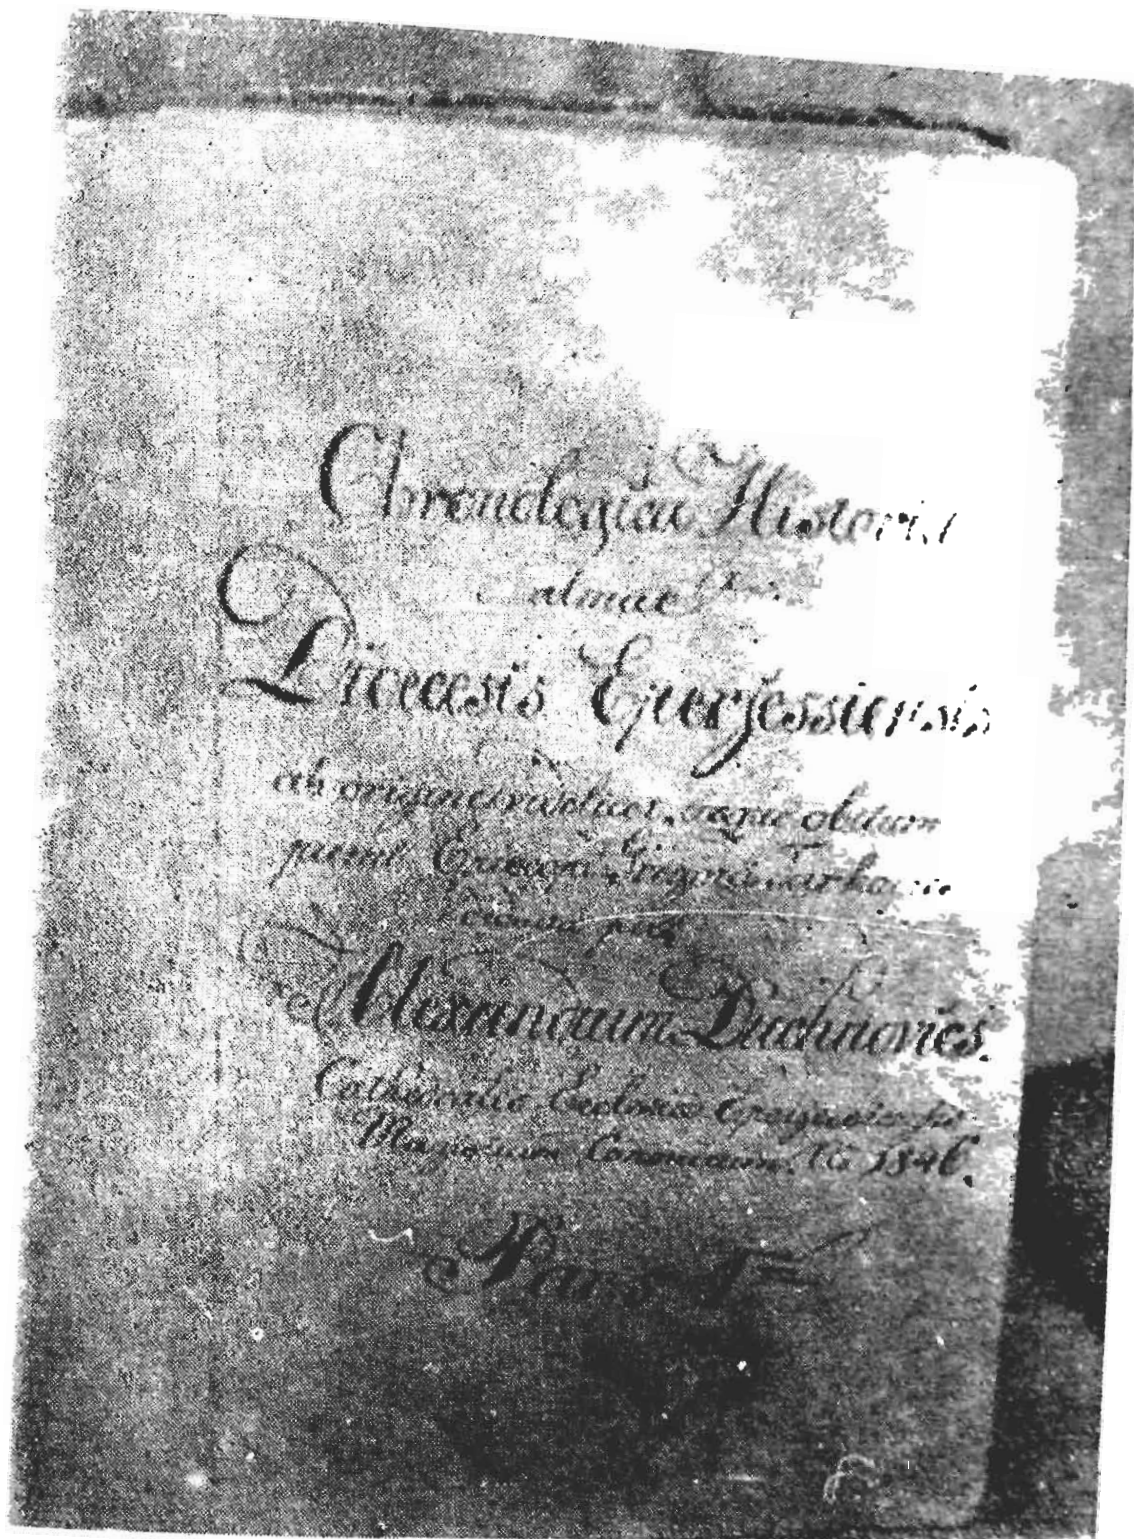 Chronologica Historica
almae
Dioecesis Eperjessiensis
ab origine usque obitum
primi Episcopi Gregorii Tarkovics
per
Alexandrum Duchnovics
Cathedralis Ecclesiae
Canonicum 1846.
Pars I